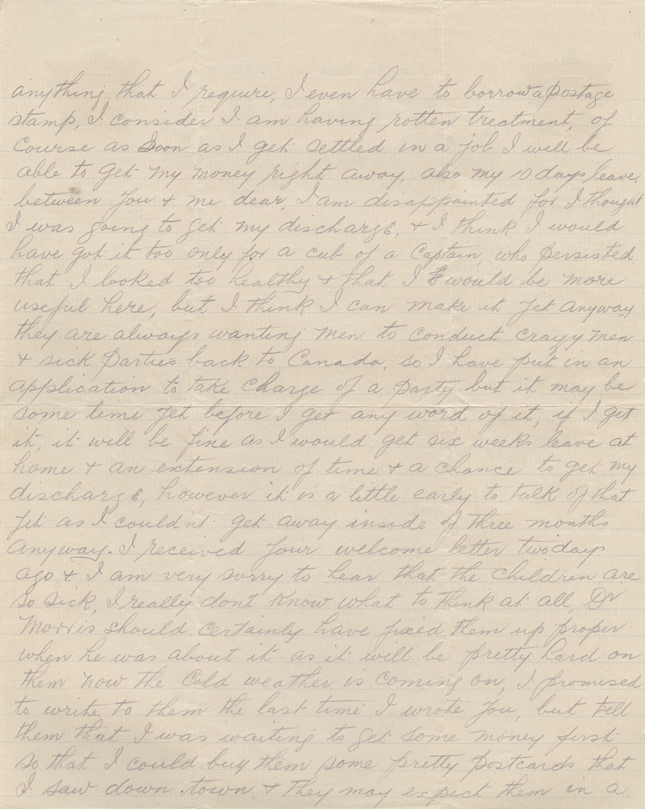 anything that I require, I even have to borrow a postage
stamp, I consider I am having rotten treatment, of
course as soon as I get settled in a job I will be
able to get my money right away, also my 10 days leave.
between you & me dear, I am disappointed for I thought
I was going to get my discharge, & I think I would
have got it too only for a cub of a Captain, who persisted
that I looked too healthy & that I would be more
useful here, but I think I can make it yet anyway
they are always wanting men to conduct crazy men
& sick parties back to Canada, so I have put in an
application to take charge of a party but it may be
some time yet before I get any word of it, if I get
it, it will be fine as I would get six weeks leave at
home & an extension of time & a chance to get my
discharge, however it is a little early to talk of that
yet as I couldn't get away inside of three months
anyway. I received your welcome letter two days
ago & I am very sorry to hear that the children are
so sick, I really dont know what to think at all, Dr
Morris should certainly have fixed them up proper
when he was about it as it will be pretty hard on
them now the cold weather is coming on, I promised
to write to them the last time I wrote you, but tell
them that I was waiting to get some money first
so that I could buy them some pretty postcards that
I saw down town, & they may expect them in a